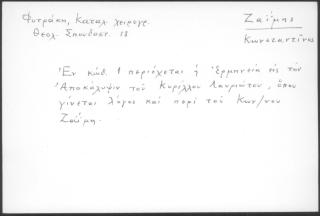 Φυτράκη, Καταλ. χειρογρ.
Θεολ. Σπουδαστ. 18
Ζαΐμης
Κωνσταντῖνος
Ἐν κώδ. 1 περιέχεται ἡ Ἑρμηνεία εἰς τὴν
Ἀποκάλυψιν τοῦ Κυρίλλου Λαυριώτου, ὅπου
γίνεται λόγος καὶ περὶ τοῦ Κων/νου
Ζαΐμη.